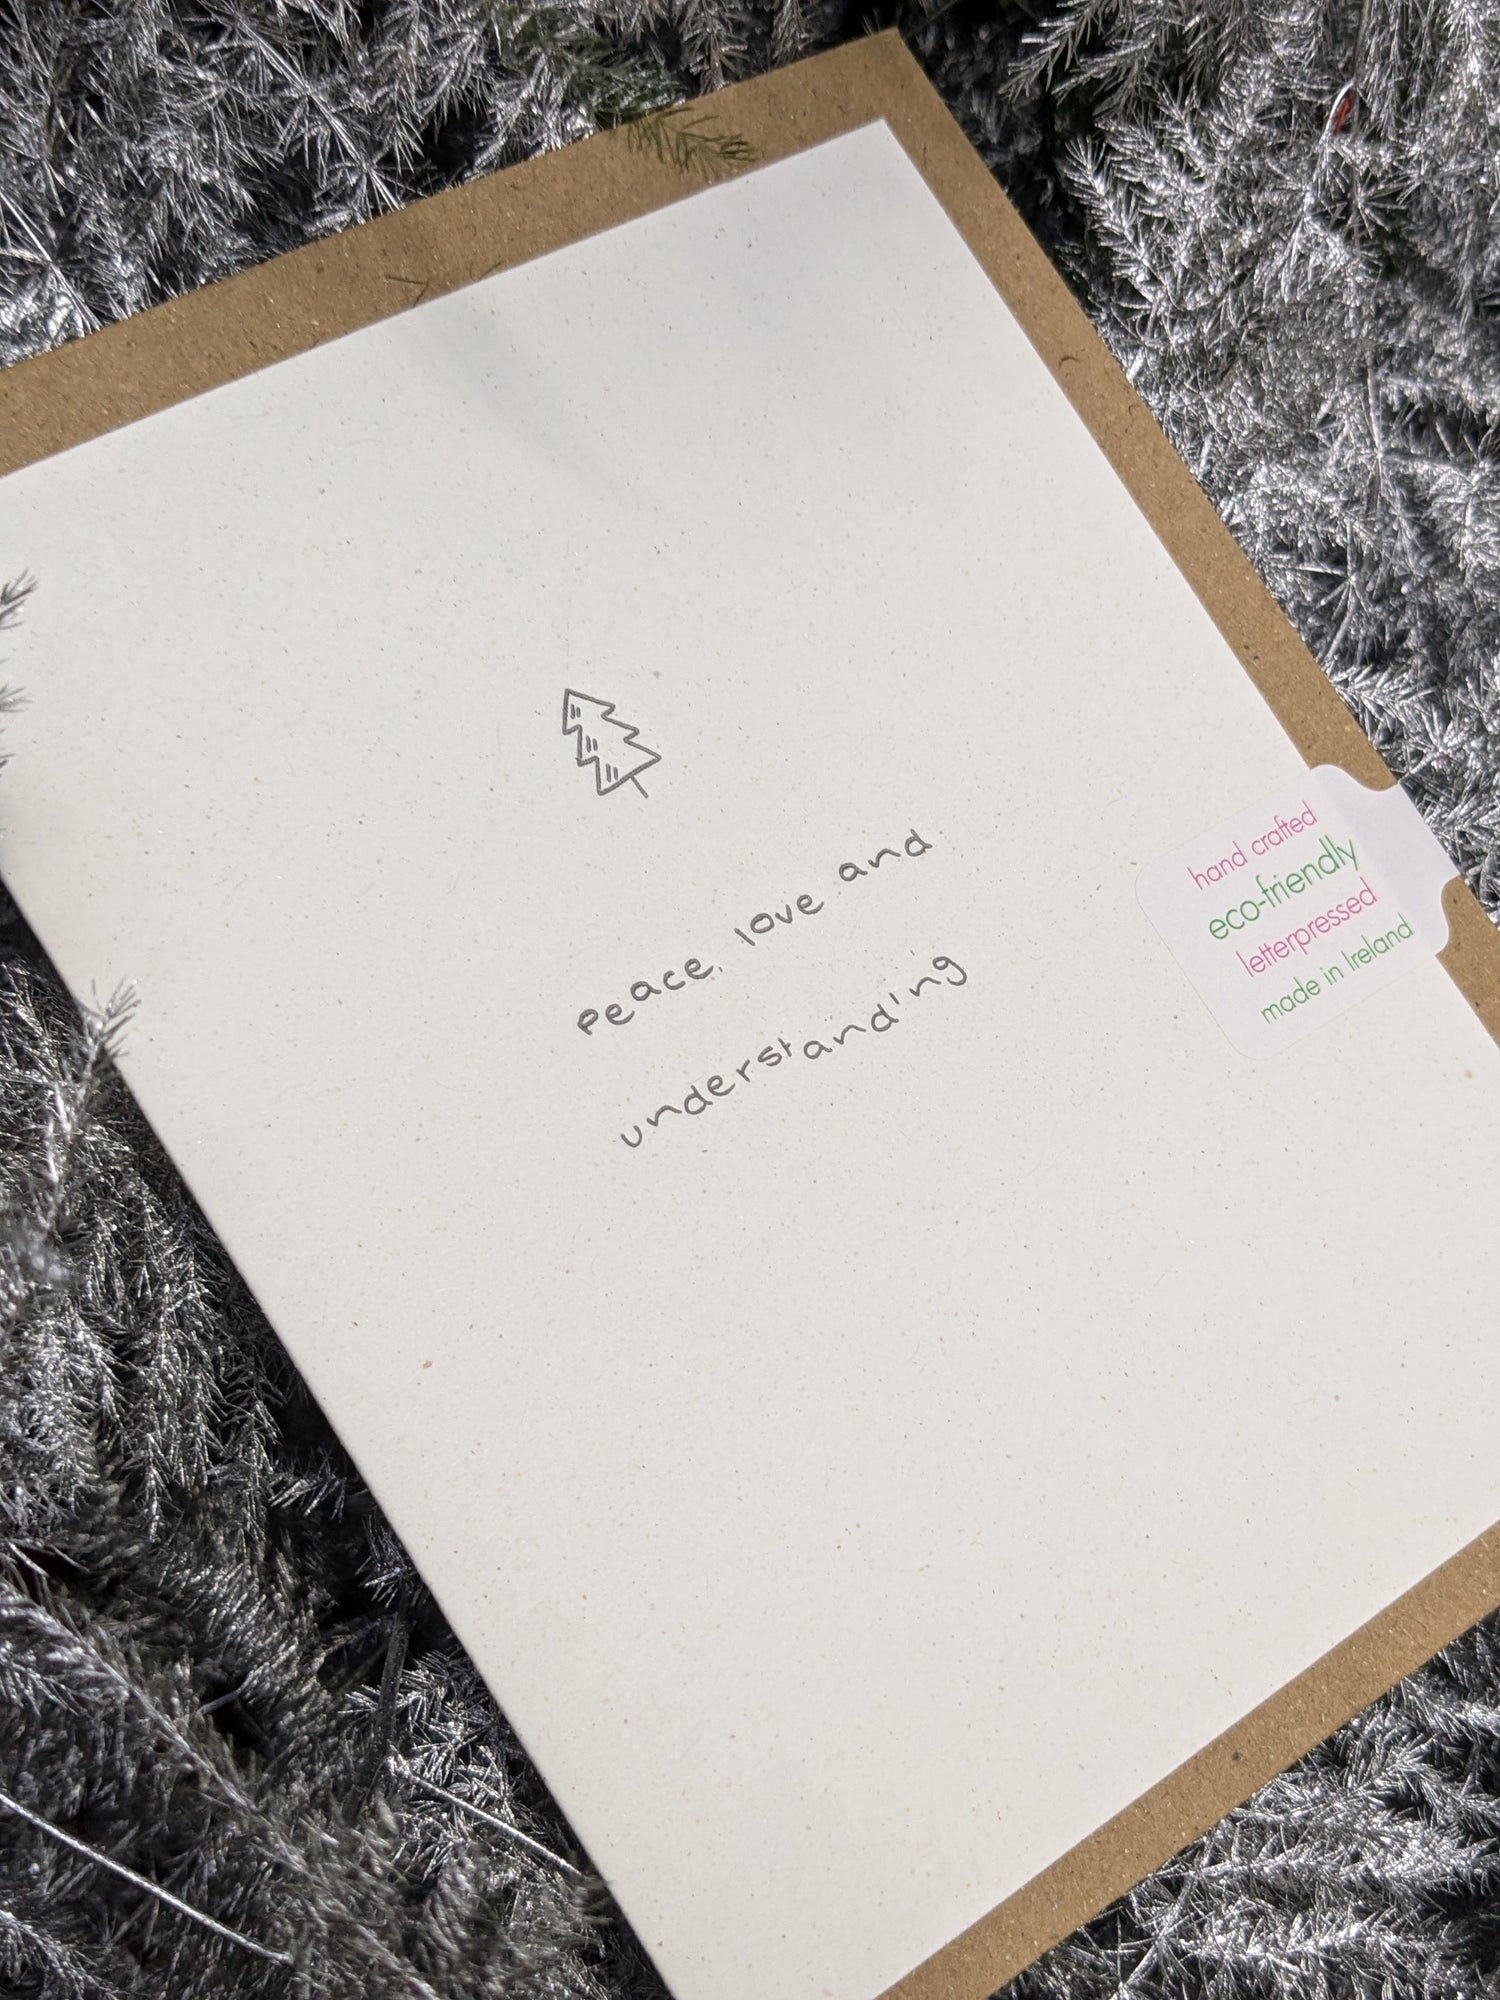 peace, love and
understanding
hand crafted
eco-friendly
letterpressed
made in Ireland